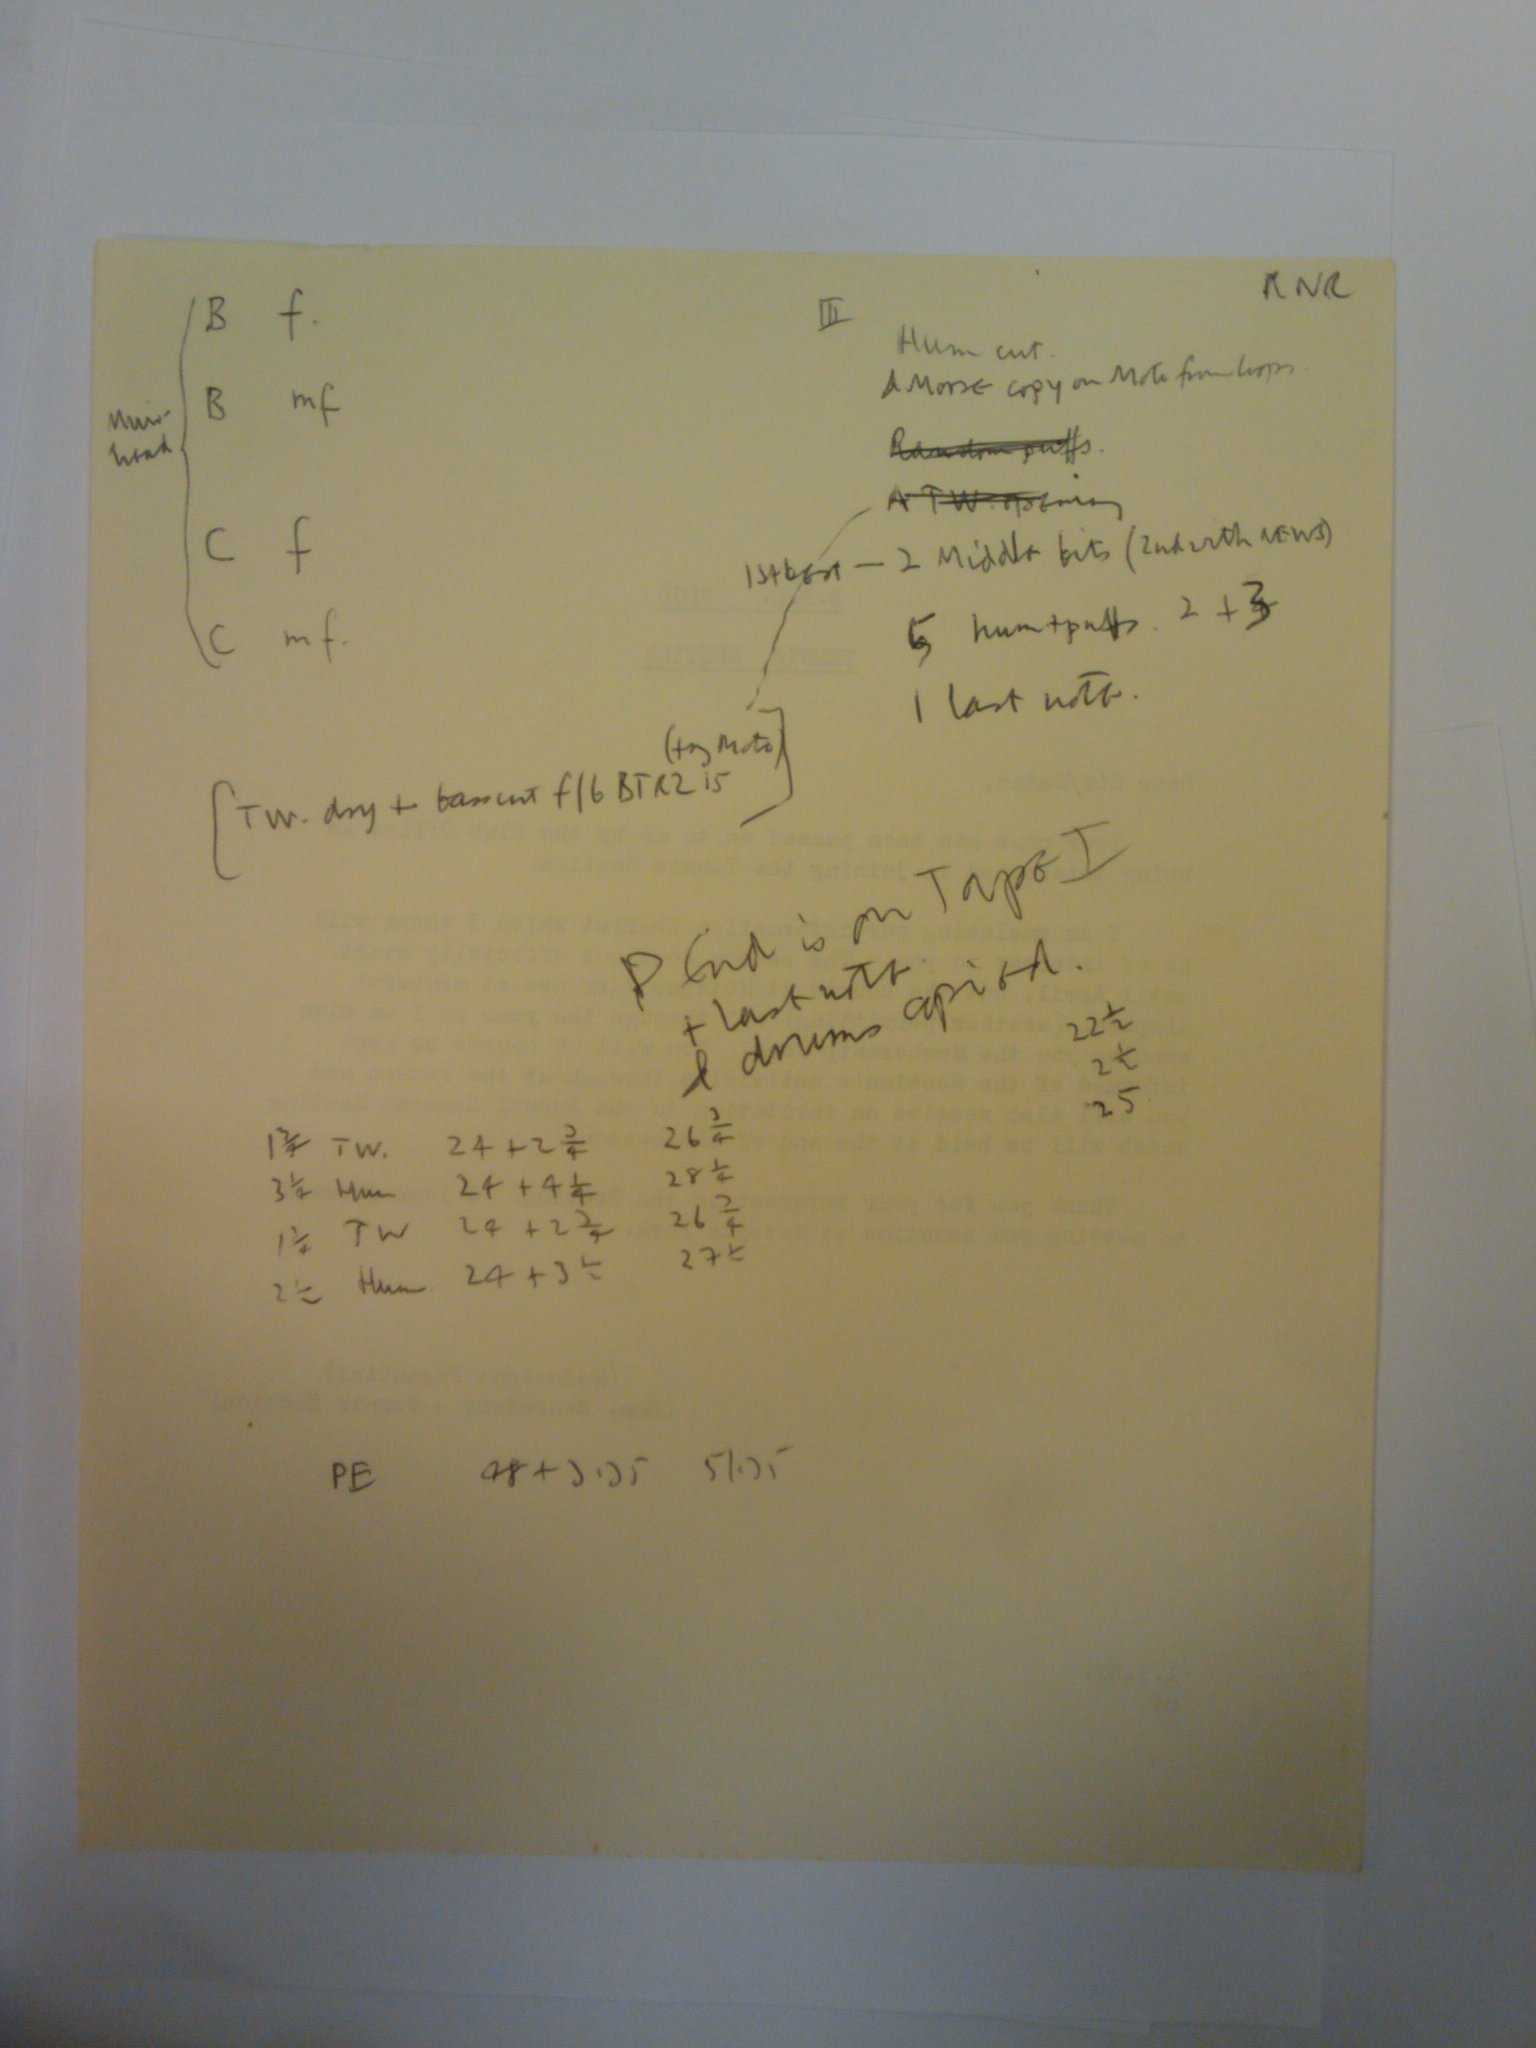 RNR
B f.
B mf
Muir-
head
C f
C mf.
III
Hum cut.
& MORSE copy on Moto from loops.
Random puffs.
A TW. opening
1st best — 2 Middle bits (2nd with NEWS)
5 hum + puffs. 2 + 3
1 last note.
(try Moto)
[TW. dry + bass cut f/b BTR2 i5]
End is on TAPE I
+ last note
& drums
22½
2½
25
1¾ TW. 24 + 2¾ 26¾
3¼ Hum 24 + 4¼ 28¼
1¾ TW 24 + 2¾ 26¾
2½ Hum 24 + 3½ 27½
PE 48 + 3.35 51.35